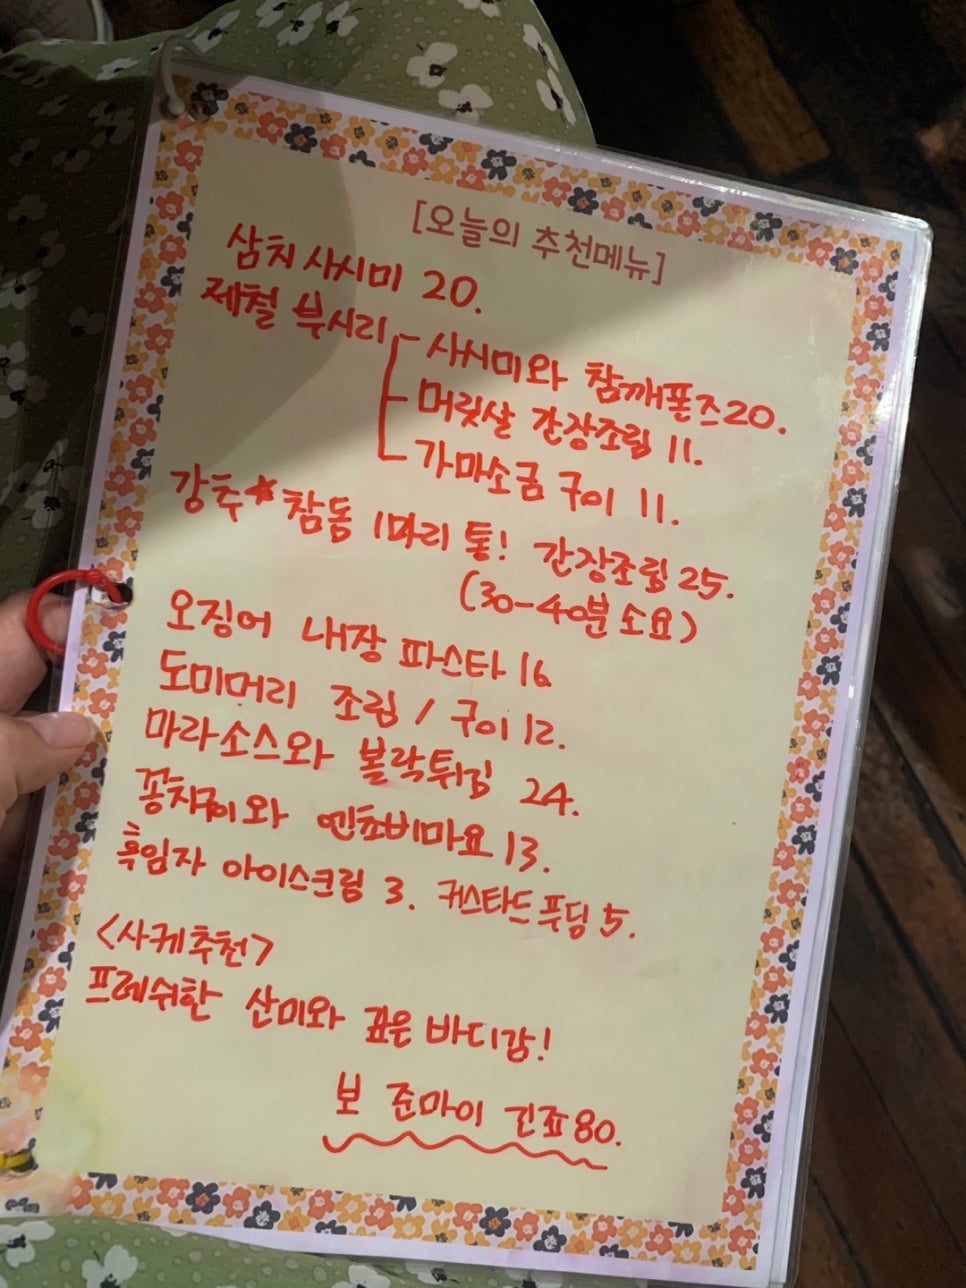 [오늘의 추천메뉴]
삼치 사시미 20.
제철 부시리 - 사시미와 참깨폰즈 20.
- 머릿살 간장조림 11.
- 가마소금 구이 11.
강추★ 참돔 1마리 통! 간장조림 25.
(30-40분 소요)
오징어 내장 파스타 16.
도미머리 조림 / 구이 12.
마라소스와 볼락튀김 24.
꽁치구이와 엔쵸비마요 13.
흑임자 아이스크림 3. 커스타드 푸딩 5.
<사케추천>
프레쉬한 산미와 깊은 바디감!
보 준마이 긴죠 80.